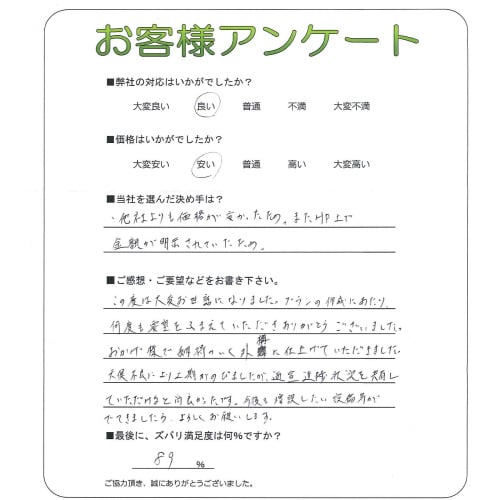 お客様アンケート
■弊社の対応はいかがでしたか?
大変良い 良い 普通 不満 大変不満
■価格はいかがでしたか?
大変安い 安い 普通 高い 大変高い
■当社を選んだ決め手は?
・他社よりも価格が安かったため。またHP上で
金額が明示されていたため。
■ご感想・ご要望などをお書き下さい。
この度は大変お世話になりました。プランの作成にあたり、
何度も要望をふまえていただきありがとうございました。
おかげ様で納得のいく外構に仕上げていただきました。
天候不良により工期がのびましたが、適宜進捗状況を共有し
ていただけると尚良かったです。今後も増設したい設備等が
でてきましたら、よろしくお願いします。
■最後に、ズバリ満足度は何%ですか?
89 %
ご協力頂き、誠にありがとうございました。